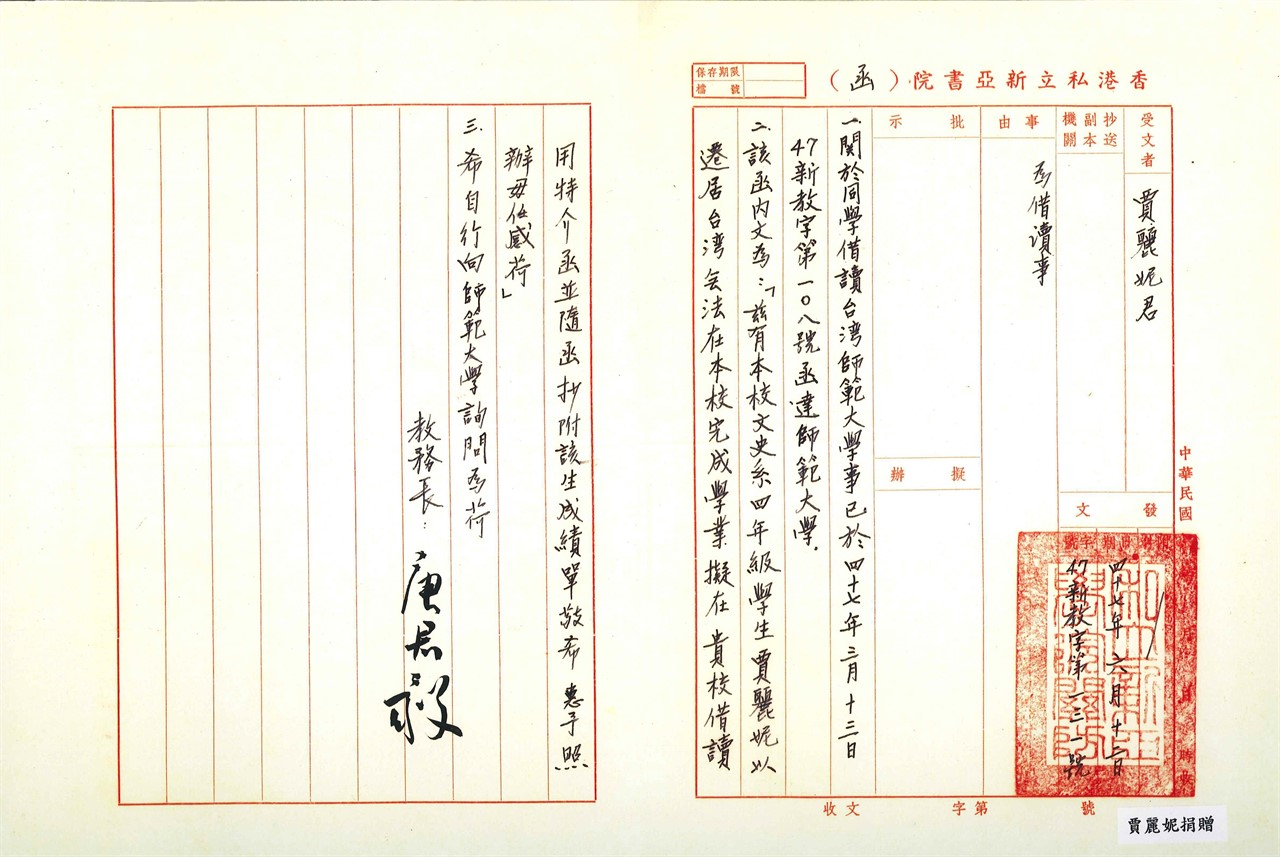 香港私立新亞書院(函)
保存期限
檔號
受文者
賈麗妮君
抄送
副本
機關
事由
為借讀事
批示
擬辦
發文
四十七年六月十二日
47新教字第一三一號
中華民國
一、關於同學借讀台湾師範大學事已於四十七年三月十三日
47新教字第一〇八號函達師範大學.
二、該函內文為:「茲有本校文史系四年級學生賈麗妮以
遷居台湾無法在本校完成學業擬在 貴校借讀
用特介函並隨函抄附該生成績單敬希 惠予照
辦毋任感荷」
三、希自行向師範大學詢問為荷
教務長:
唐君毅
收文 字第 號
賈麗妮捐贈